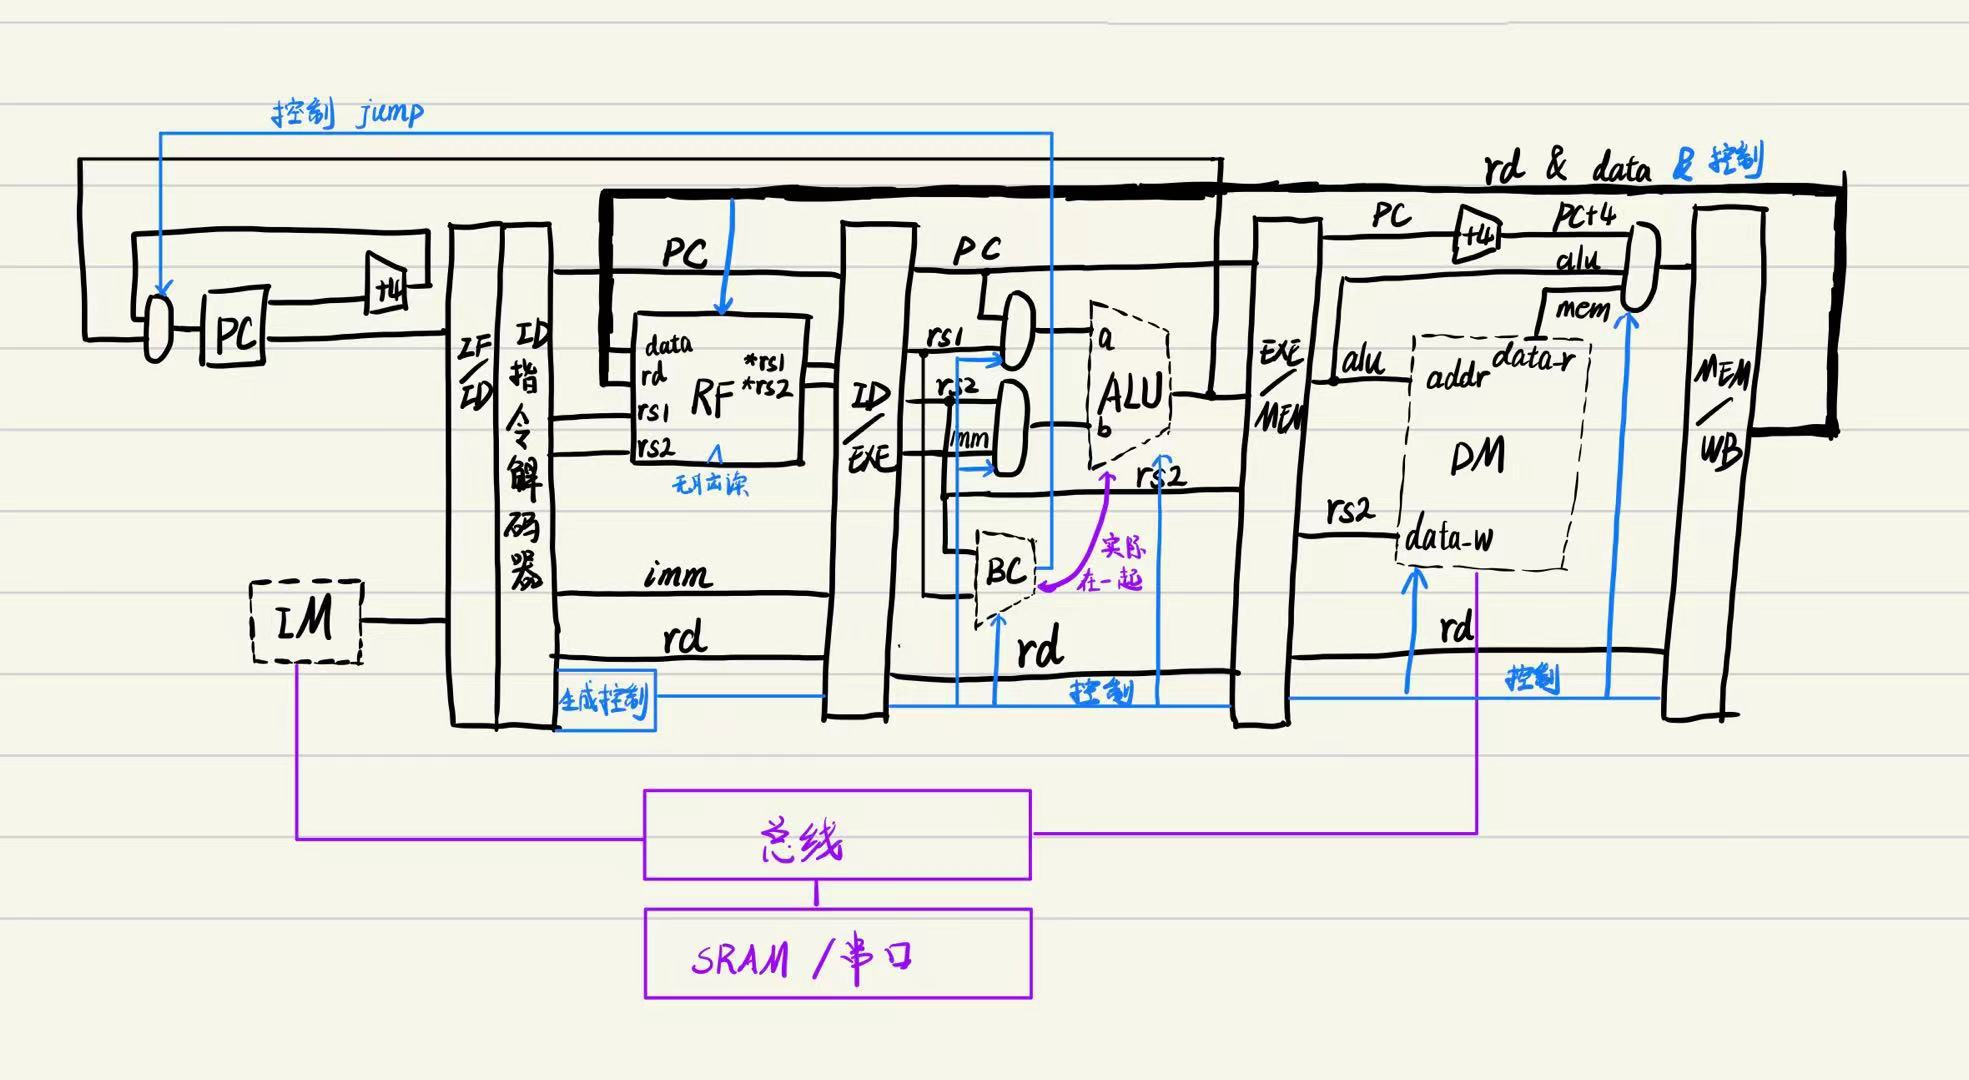 控制 jump
rd & data & 控制
PC
+4
IF/ID
ID指令解码器
PC
data
rd
rs1
rs2
RF
*rs1
*rs2
imm
rd
生成控制
ID/EXE
PC
rs1
rs2
imm
a
b
ALU
rs2
BC
实际
在一起
rd
控制
EXE/MEM
PC
+4
PC+4
alu
mem
alu
addr
data-r
DM
rs2
data-w
rd
控制
MEM/WB
IM
总线
SRAM / 串口